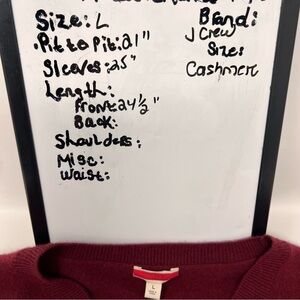 Size: L
Brand:
J Crew
Pit to Pit: 21"
Size:
Sleeves: 25"
Cashmere
Length:
Front: 24 1/2"
Back:
Shoulders:
Misc:
Waist:
L